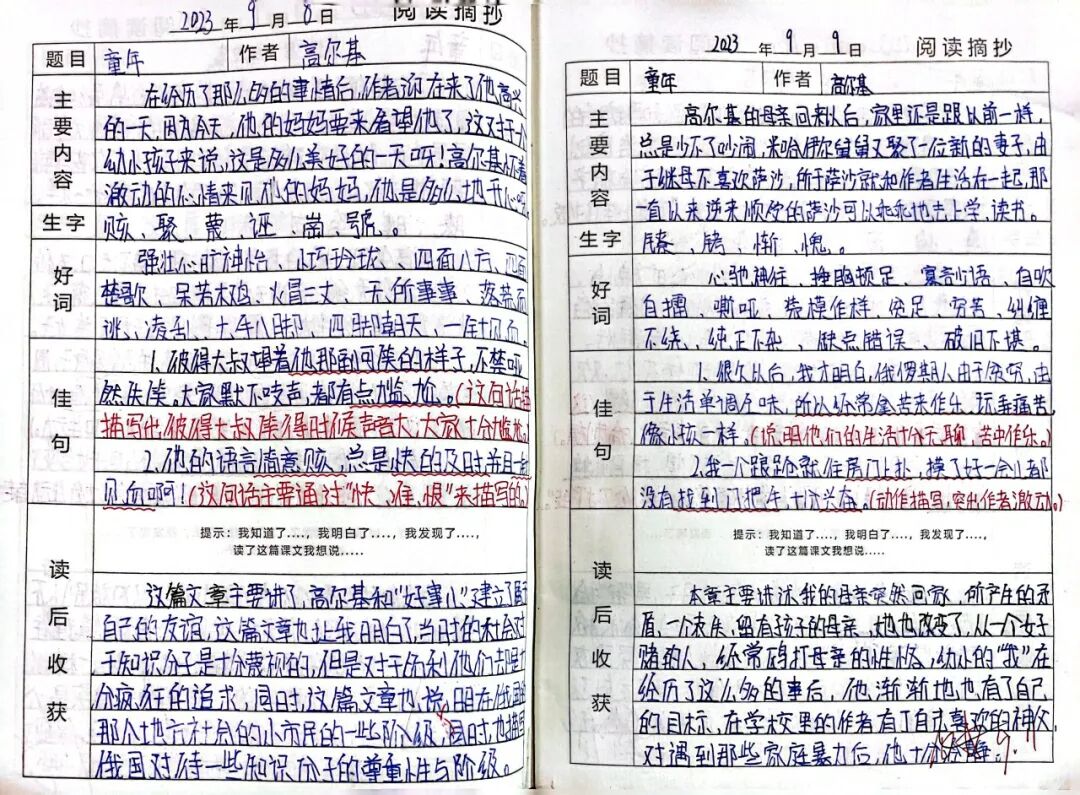 2023 年 9 月 8 日 阅读摘抄
题目 童年 作者 高尔基
主要内容
在经历了那么多的事情后,作者迎在来了他高兴
的一天,因为今天,他的妈妈要来看望他了,这对于一个
幼小孩子来说,这是多么美好的一天呀!高尔基怀着
激动的心情来见他的妈妈,他是多么地开心呀
生字 赅、聚、蒙、诬、崮、號。
好词
强壮、心旷神怡、小巧玲珑、四面八方、四面
楚歌、呆若木鸡、火冒三丈、无所事事、
逃、凌乱、七手八脚、四脚朝天、一针见血
佳句
1.彼得大叔望着他那副可笑的样子,不禁哑
然失笑。大家默不吱声,都有点尴尬。(这句话
描写出,彼得大叔笑得时候声音大,大家十分尴尬。)
2.他的语言简意赅,总是快的及时并且一针
见血啊!(这句话主要通过“快、准、恨”来描写的。)
读后收获
提示:我知道了....,我明白了....,我发现了....,
读了这篇课文我想说.....
这篇文章主要讲了,高尔基和“好事儿”建立了属于
自己的友谊,这篇文章也让我明白了,当时的社会对
于知识分子是十分蔑视的,但是对于名利他们却是十
分疯狂的追求,同时,这篇文章也说明在俄国的
那个地方社会的小市民的一些阶级,同时,也描
俄国对待一些知识分子的尊重性与阶级。
2023 年 9 月 9 日 阅读摘抄
题目 童年 作者 高尔基
主要内容
高尔基的母亲回来以后,家里还是跟以前一样,
总是少不了吵闹,米哈伊尔舅舅又娶了一位新的妻子,由
于继母不喜欢萨沙,所于萨沙就和作者生活在一起,那
一直以来逆来顺受的萨沙可以乖乖地去上学、读书。
生字 惭、愧。
好词
心驰神往、捶胸顿足、寡言少语、自吹
自擂、嘶哑、装模作样、穷苦、纠缠
不绕、纯正不杂、缺点错误、破旧不堪。
佳句
1.很久以后,我才明白,俄罗斯人由于贫穷,由
于生活单调乏味,所以经常拿苦来作乐,玩弄痛苦,
像小孩一样。(说明他们的生活十分无聊,苦中作乐。)
2.我一个踉跄就往房门上扑,摸了好一会儿都
没有找到门把手,十分兴奋。(动作描写,突出作者激动。)
读后收获
提示:我知道了....,我明白了....,我发现了....,
读了这篇课文我想说.....
本章主要讲述,我的母亲突然回家,所产生的矛
盾,一个丧失,留有孩子的母亲,她也改变了,从一个好
赌的人,经常码打母亲的性格,幼小的“我”在
经历了这么多的事后,他渐渐地也有了自己
的目标,在学校里的作者有了自己喜欢的神父,
对遇到那些家庭暴力后,他十分冷静。
9.11